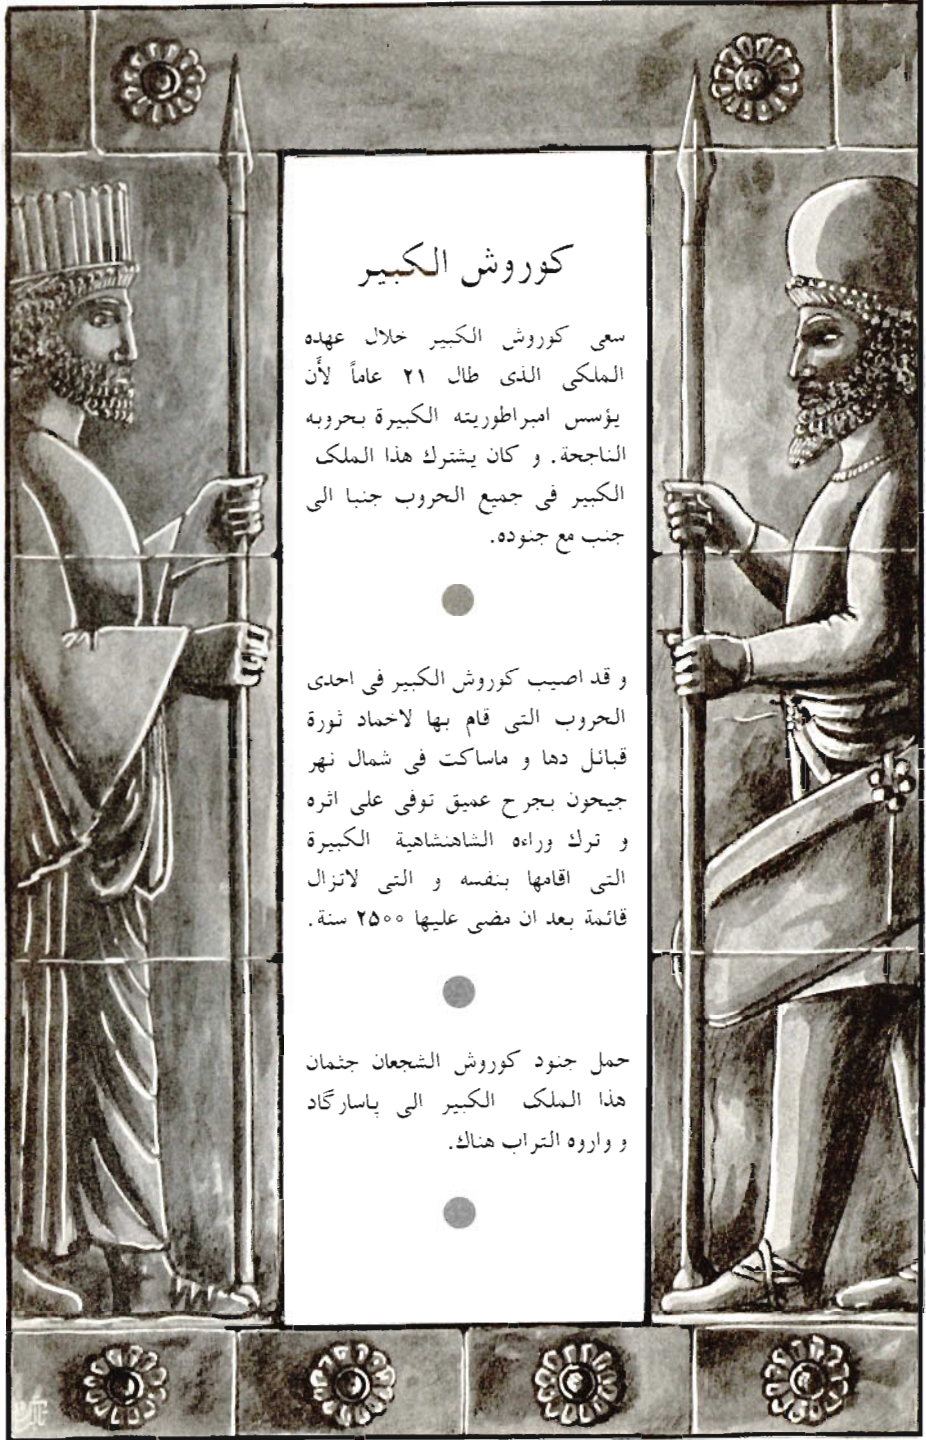 كوروش الكبير
سعی كوروش الكبير خلال عهده
الملکی الذی طال ۲۱ عاماً لأن
يؤسس امبراطوريته الكبيرة بحروبه
الناجحة. و كان يشترك هذا الملک
الكبير فی جميع الحروب جنبا الی
جنب مع جنوده.
و قد اصيب كوروش الكبير فی احدی
الحروب التی قام بها لاخماد ثورة
قبائل دها و ماساكت فی شمال نهر
جيحون بجرح عميق توفی علی اثره
و ترك وراءه الشاهنشاهية الكبيرة
التی اقامها بنفسه و التی لاتزال
قائمة بعد ان مضی عليها ۲۵۰۰ سنة.
حمل جنود كوروش الشجعان جثمان
هذا الملک الكبير الی پاسارگاد
و واروه التراب هناك.